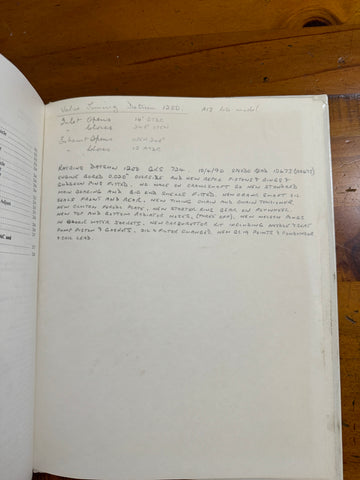 Valve Timing Datsun 1200. A12 late model
Inlet Opens 14° BTDC
" Closes
Exhaust Opens
" Closes 12 ATDC
DATSUN 1200
ENGINE BORED 0.020" OVERSIZE AND NEW REPCO PISTONS & RINGS &
GUDGEON PINS FITTED. NO WEAR ON CRANKSHAFT SO NEW STANDARD
MAIN BEARING AND BIG END SHELLS FITTED. NEW CRANK SHAFT OIL
SEALS FRONT AND REAR. NEW TIMING CHAIN AND CHAIN TENSIONER
NEW CLUTCH PLATE. NEW STARTER RING GEAR ON FLYWHEEL
NEW TOP AND BOTTOM RADIATOR HOSES, NEW WELSH PLUGS
IN BLOCK WATER JACKETS. NEW CARBURETTER KIT INCLUDING NEEDLE & SEAT
PUMP PISTON & GASKETS. OIL & FILTER CHANGED. NEW POINTS & CONDENSOR
& COIL LEAD.